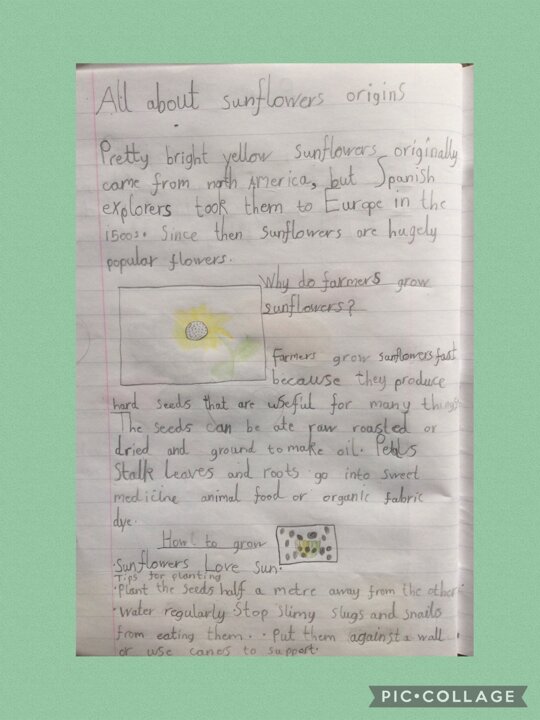 All about sunflowers origins
Pretty bright yellow sunflowers originally
came from north America, but Spanish
explorers took them to Europe in the
1500s. Since then sunflowers are hugely
popular flowers.
Why do farmers grow
sunflowers?
Farmers grow sunflowers fast
because they produce
hard seeds that are useful for many things.
The seeds can be ate raw roasted or
dried and ground to make oil. Petals
Stalk Leaves and roots go into sweet
medicine animal food or organic fabric
dye.
How to grow
·Sunflowers Love sun.
Tips for planting
·Plant the seeds half a metre away from the other.
·Water regularly Stop slimy slugs and snails
from eating them. · Put them against a wall
or use canes to support.
PIC•COLLAGE